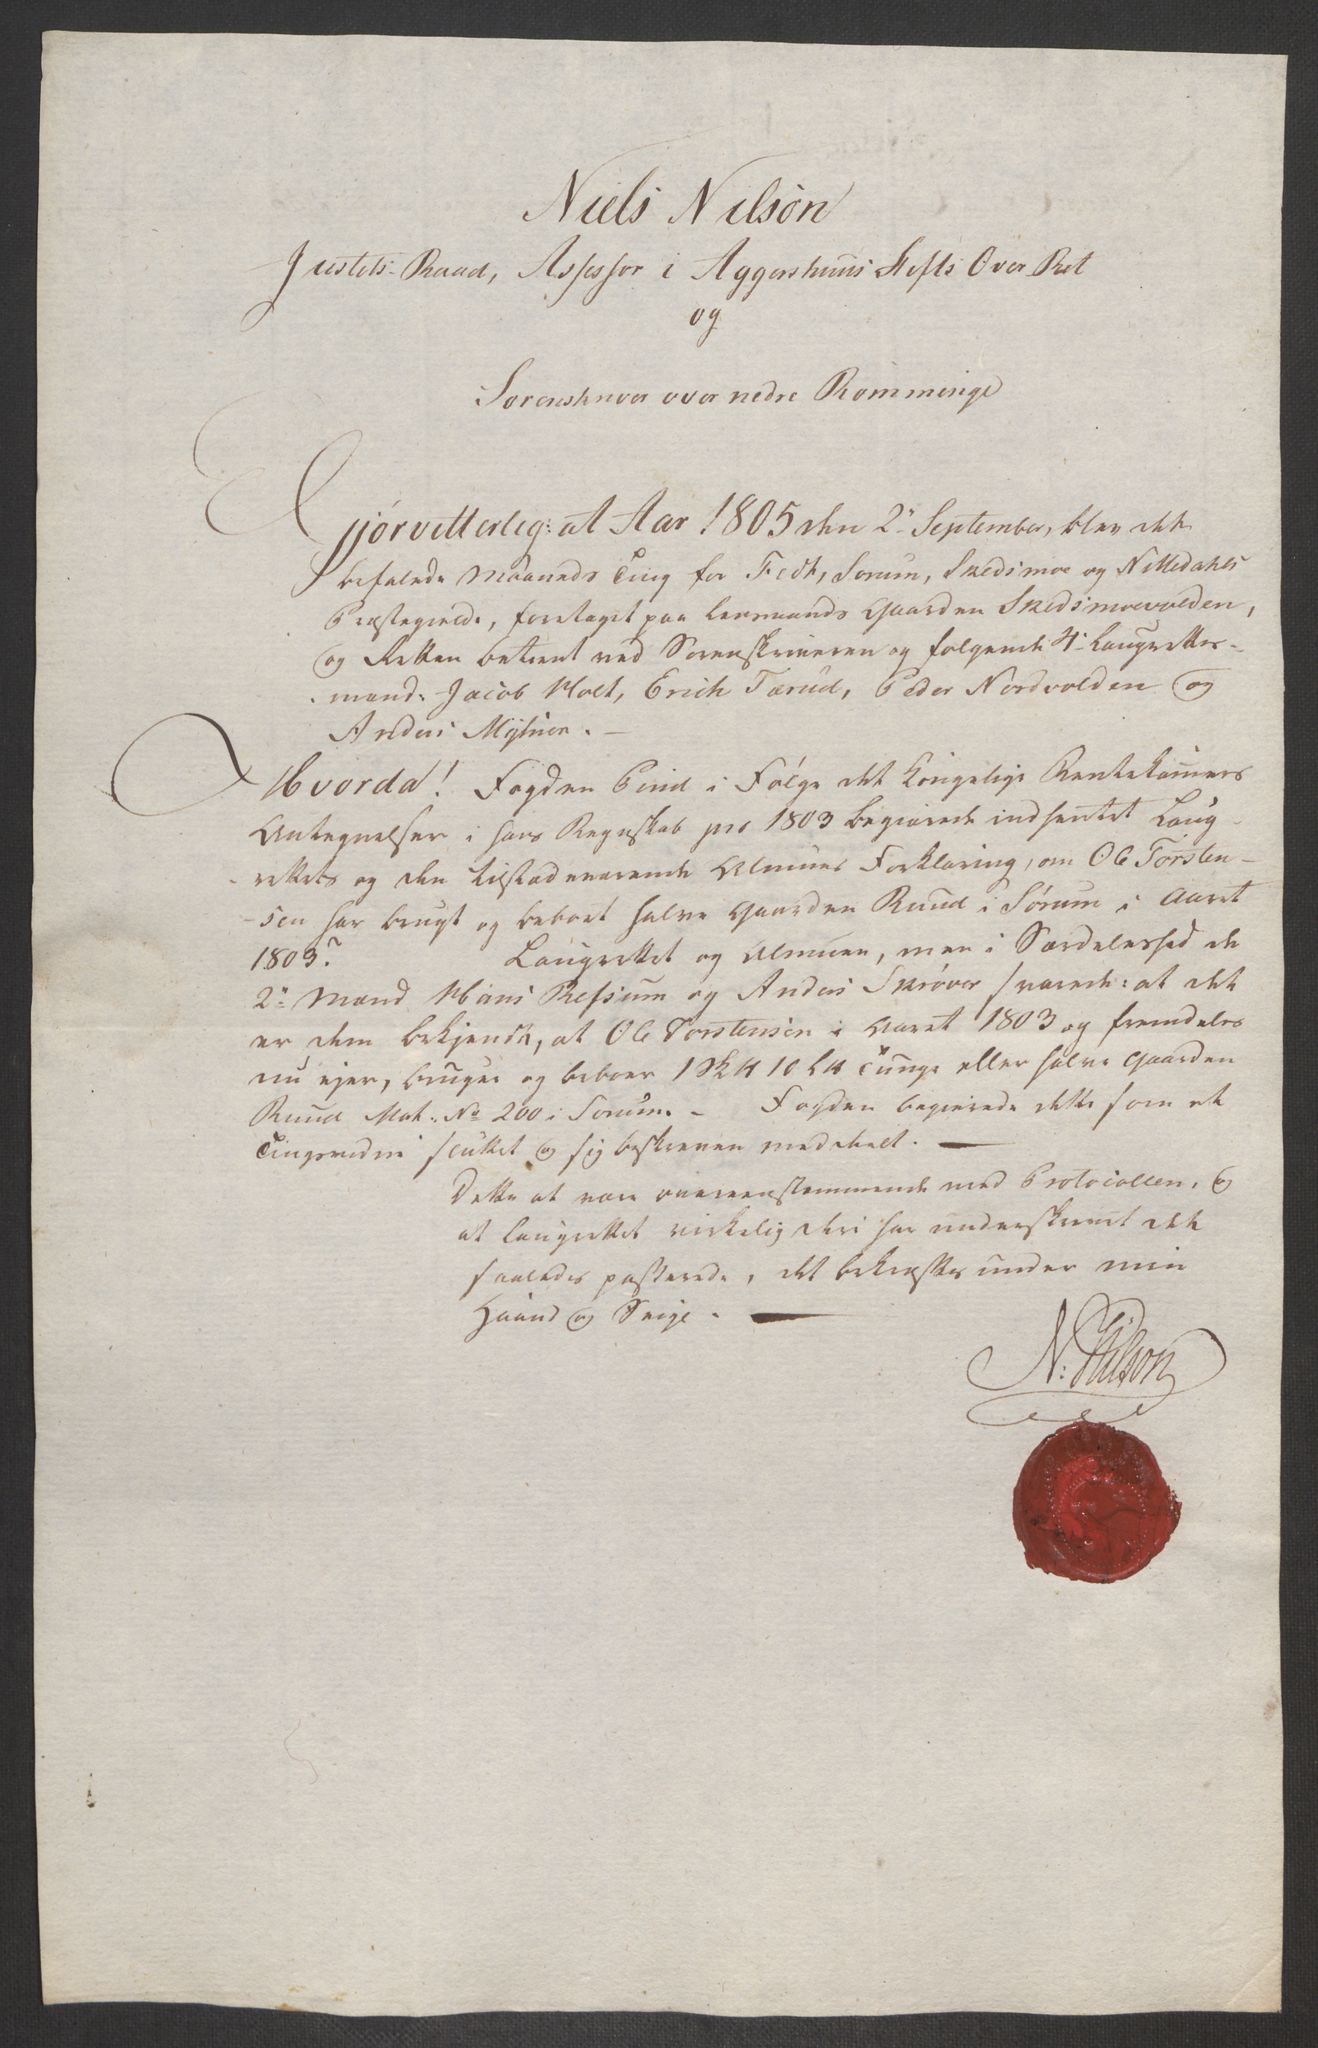 Niels Nilsön
Justits-Raad, Assessor i Aggershuus Stifts Over Ret
og
Sorenskriver over nedre Rommerige
Gjör vitterlig: at Aar 1805 den 2n September, blev det
befalede Maaneds Ting for Fedt, Sorum, Skedsmoe og Nittedahls
Præstegield, foretaget paa Lensmands Gaarden Skedsmoevolden,
og Retten betient ved Sorenskriveren og følgende 4re Laugrettes-
mænd: Jacob Holt, Erich Tærud, Peder Nordvolden og
Anders Myhrer. –
Hvorda! Fogden Pind i Følge det Kongelige Rentekamers
Antegnelser i hans Regnskab pro 1803 begiærede indhentet Laug-
rettets og den tilstædeværende Almues Forklaring, om Ole Torsten-
sen har brugt og beboet halve Gaarden Ruud i Sørum i Aaret
1803? Laugrettet og Almuen, men i Særdeleshed de
2de Mænd Hans Refsum og Anders Skrøver svarede: at det
er dem bekjendt, at Ole Torstensen i Aaret 1803 og fremdeles
nu ejer, bruger og beboer 1 Skt 10 Lt Tunge eller halve Gaarden
Ruud Mat: No 200 i Sorum. – Fogden begierede dette som et
Tingsvidne sluttet og sig beskreven meddeelt. –
Dette at være overeensstemmende med Protocollen, og
at Laugrettet virkelig deri har underskrevet det
saaledes passerede, det bekræftes under min
Haand og Seigl. –
N: Nilson